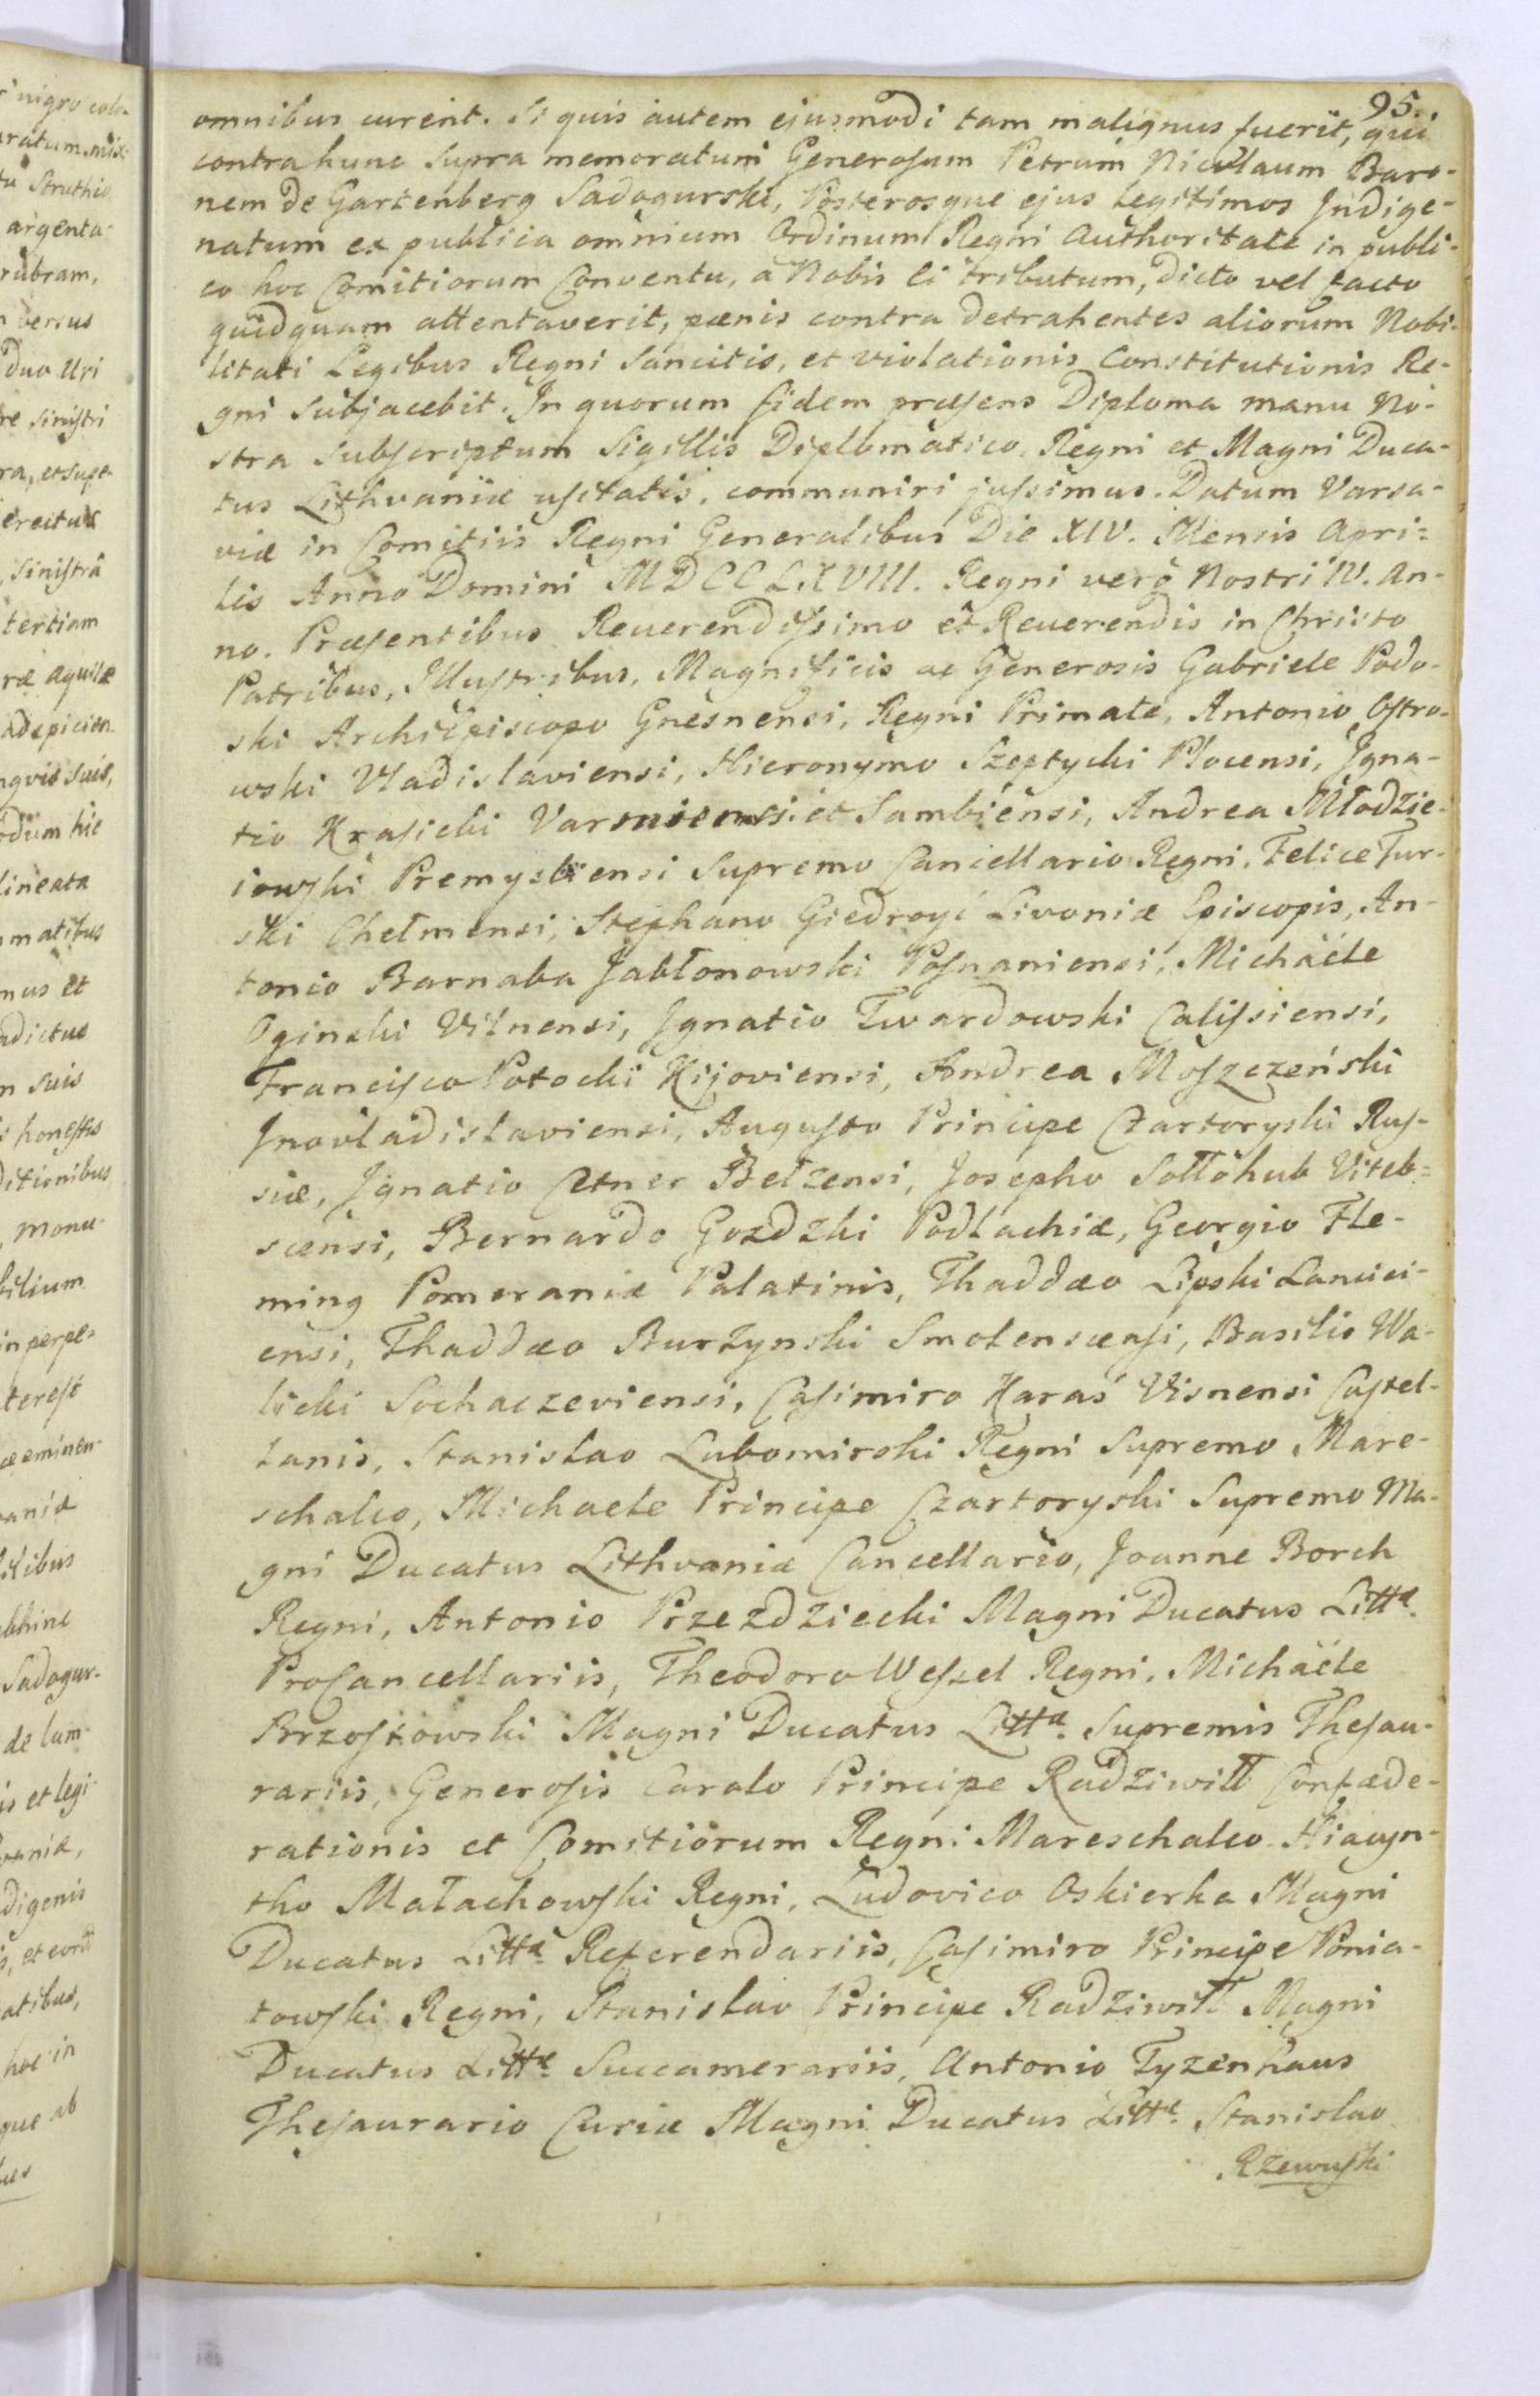 95.
omnibus curent. Si quis autem ejusmodi tam malignus fuerit, qui
contra hunc supra memoratum Generosum Petrum Nicolaum Baro-
nem de Gartenberg Sadogurski, Posterosque ejus legitimos Indige-
natum ex publica omnium Ordinum Regni Authoritate in publi-
co hoc Comitiorum Conventu, a Nobis ei tributum, dicto vel facto
quidquam attentaverit, pænis contra detrahentes aliorum Nobi-
litati Legibus Regni Sancitis, et violationis Constitutionis Re-
gni Subjacebit. In quorum fidem præsens Diploma manu No-
stra Subscriptum Sigillis Diplomatico Regni et Magni Duca-
tus Lithvaniæ usitatis, communiri jussimus. Datum Varsa-
viæ in Comitiis Regni Generalibus Die XIV. Mensis Apri-
lis Anno Domini MDCCLXVIII. Regni vero Nostri IV. An-
no. Præsentibus Reverendissimo et Reverendis in Christo
Patribus, Illustribus, Magnificis ac Generosis Gabriele Podo-
ski Archiepiscopo Gnesnensi, Regni Primate, Antonio Ostro-
wski Vladislaviensi, Hieronymo Szeptycki Plocensi, Igna-
tio Krasicki Varmiensi et Sambiensi, Andrea Młodzie-
iowski Premysliensi Supremo Cancellario Regni, Felice Tur-
ski Chelmensi, Stephano Giedroyć Livoniæ Episcopis, An-
tonio Barnaba Jabłonowski Posnaniensi, Michäele
Oginski Vilnensi, Ignatio Twardowski Calissiensi,
Francisco Potocki Kijoviensi, Andrea Moszczeński
Inovladislaviensi, Augusto Principe Czartoryski Rus-
siæ, Ignatio Cetner Belzensi, Josepho Sołłohub Viteb-
scensi, Bernardo Gozdzki Podlachiæ, Georgio Fle-
ming Pomeraniæ Palatinis, Thaddæo Lipski Lancici-
ensi, Thaddæo Burzynski Smolenscensi, Basilio Wa-
licki Sochaczeviensi, Casimiro Karaś Visnensi Castel-
lanis, Stanislao Lubomirski Regni Supremo Mare-
schalco, Michaele Principe Czartoryski Supremo Ma-
gni Ducatus Lithvaniæ Cancellario, Joanne Borch
Regni, Antonio Przezdziecki Magni Ducatus Littæ
ProCancellariis, Theodoro Wessel Regni, Michäele
Brzostowski Magni Ducatus Littæ Supremis Thesau-
rariis, Generosis Carolo Principe Radziwiłł Confæde-
rationis et Comitiorum Regni Mareschalco Hiacyn-
tho Małachowski Regni, Ludovico Oskierka Magni
Ducatus Littæ Referendariis, Casimiro Principe Ponia-
towski Regni, Stanislao Principe Radziwiłł Magni
Ducatus Littæ Succamerariis, Antonio Tyzenhaus
Thesaurario Curiæ Magni Ducatus Littæ Stanislao
Rzewuski